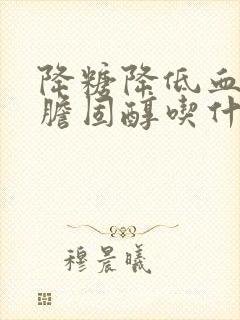 降糖降低血
胆固醇喫什
穆晨曦